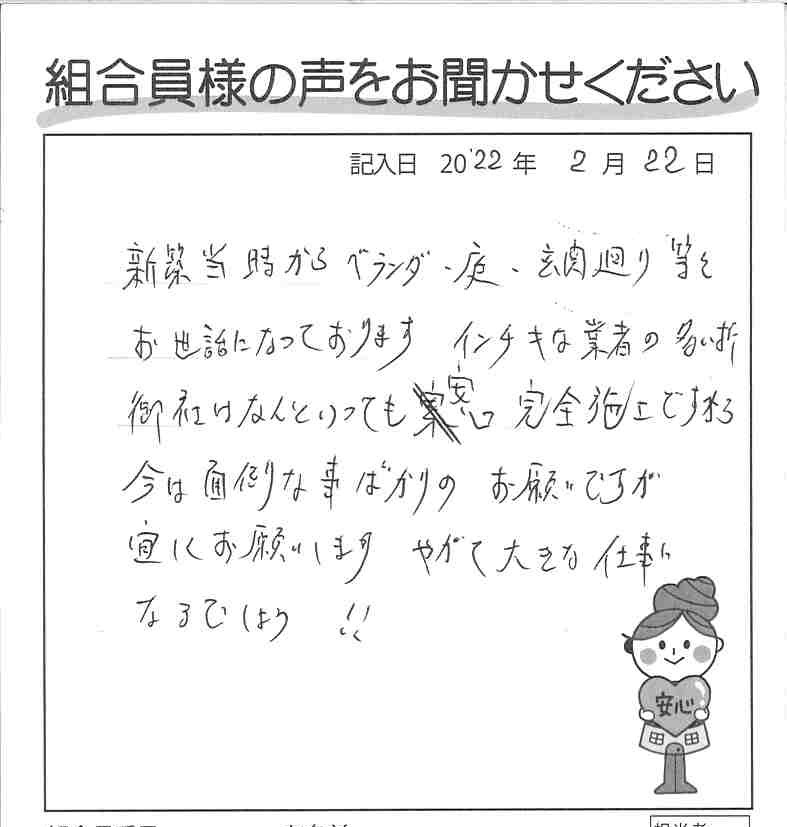 組合員様の声をお聞かせください
記入日 20'22年 2月22日
新築当時からベランダ、庭、玄関廻り等を
お世話になっております インチキな業者の多い折
御社はなんといっても安心 完全施工ですから
今は面倒な事ばかりの お願いですが
宜しくお願いします やがて大きな仕事に
なるでしょう !!
安心